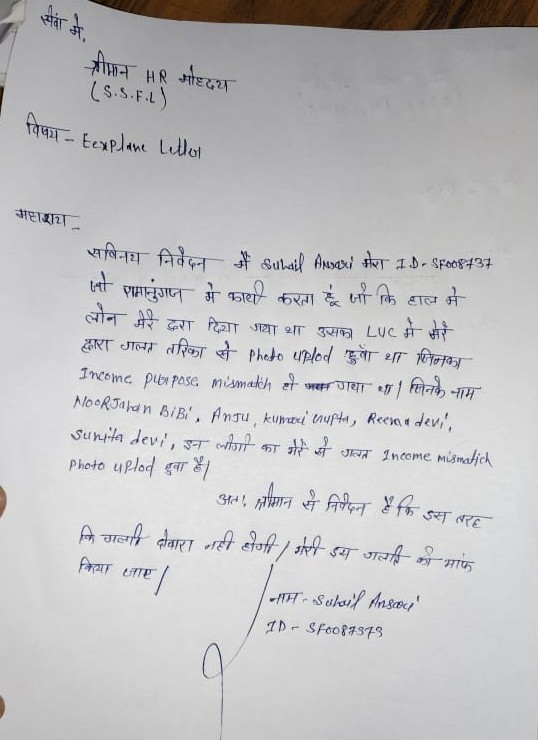 सेवा मे,
श्रीमान HR मोहदय
(S.S.F.L)
विषय - Eexplane Letter
महाशय -
सविनय निवेदन मैं Suhail Ansari मेरा ID- SF008737
जो रामानुगंज मे कार्य करता हूं जो कि हाल मे
लोन मेरे द्वरा दिया गया था उसका LUC मे मेरे
द्वारा गलत तरिका से Photo uplod हुवाँ था जिनका
Income purpose mismatch हो गया था। जिनके नाम
NoorJahan BiBi, Anju, kumari Gupta, Reema devi,
Sunita devi, इन लोगो का मेरे से गलत Income mismatich
Photo uplod हुवा है।
अतः श्रीमान से निवेदन है कि इस तरह
कि गलति दोबारा नही होगी। मेरी इस गलति को मांफ
किया जाए।
नाम - Suhail Ansari
ID- SF0087373